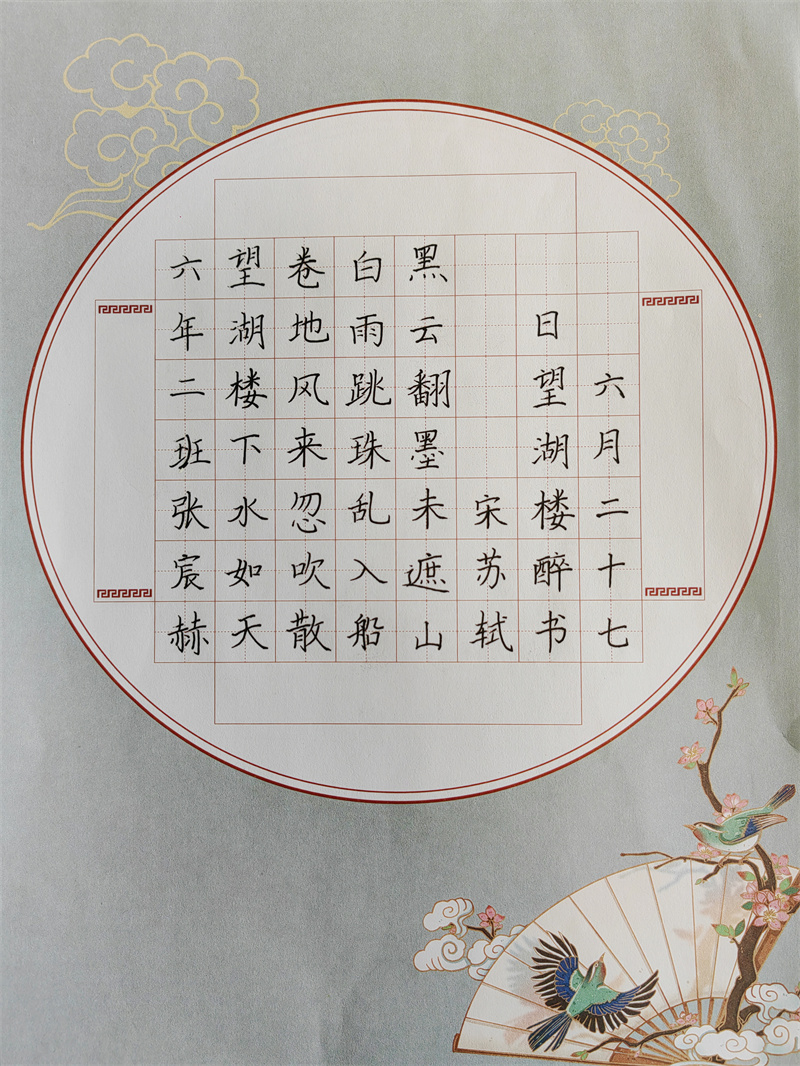 六月二十七
日望湖楼醉书
宋苏轼
黑云翻墨未遮山
白雨跳珠乱入船
卷地风来忽吹散
望湖楼下水如天
六年二班张宸赫